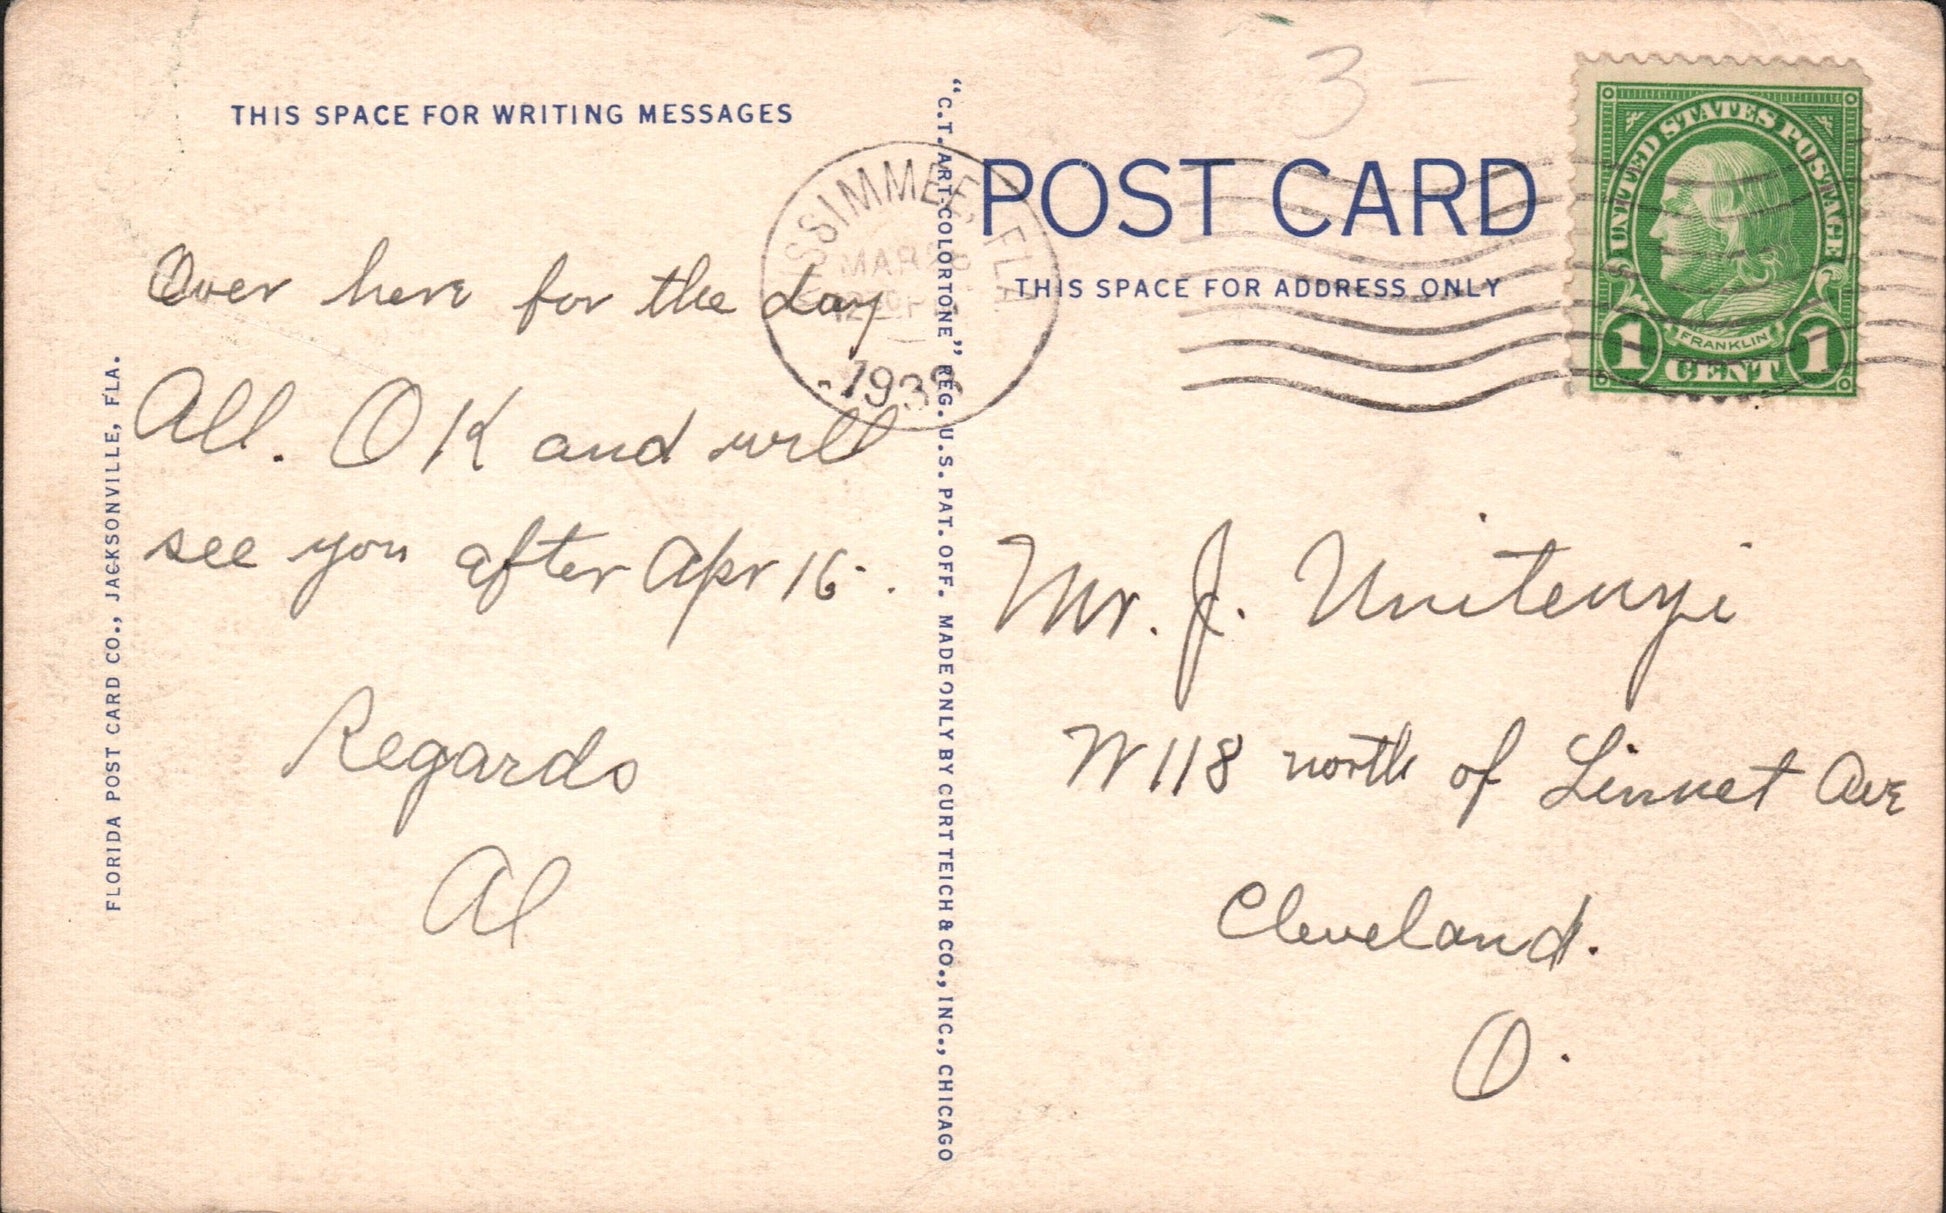 THIS SPACE FOR WRITING MESSAGES
Over here for the day
All. OK and will
see you after Apr 16.
Regards
Al
FLORIDA POST CARD CO., JACKSONVILLE, FLA.
"C.T. ART-COLORTONE" REG. U.S. PAT. OFF. MADE ONLY BY CURT TEICH & CO., INC., CHICAGO
KISSIMMEE, FLA
MAR
POST CARD
THIS SPACE FOR ADDRESS ONLY
3 -
UNITED STATES POSTAGE
FRANKLIN
1 CENT 1
Mr. J.
W 118 north of Linnet Ave
Cleveland.
O.